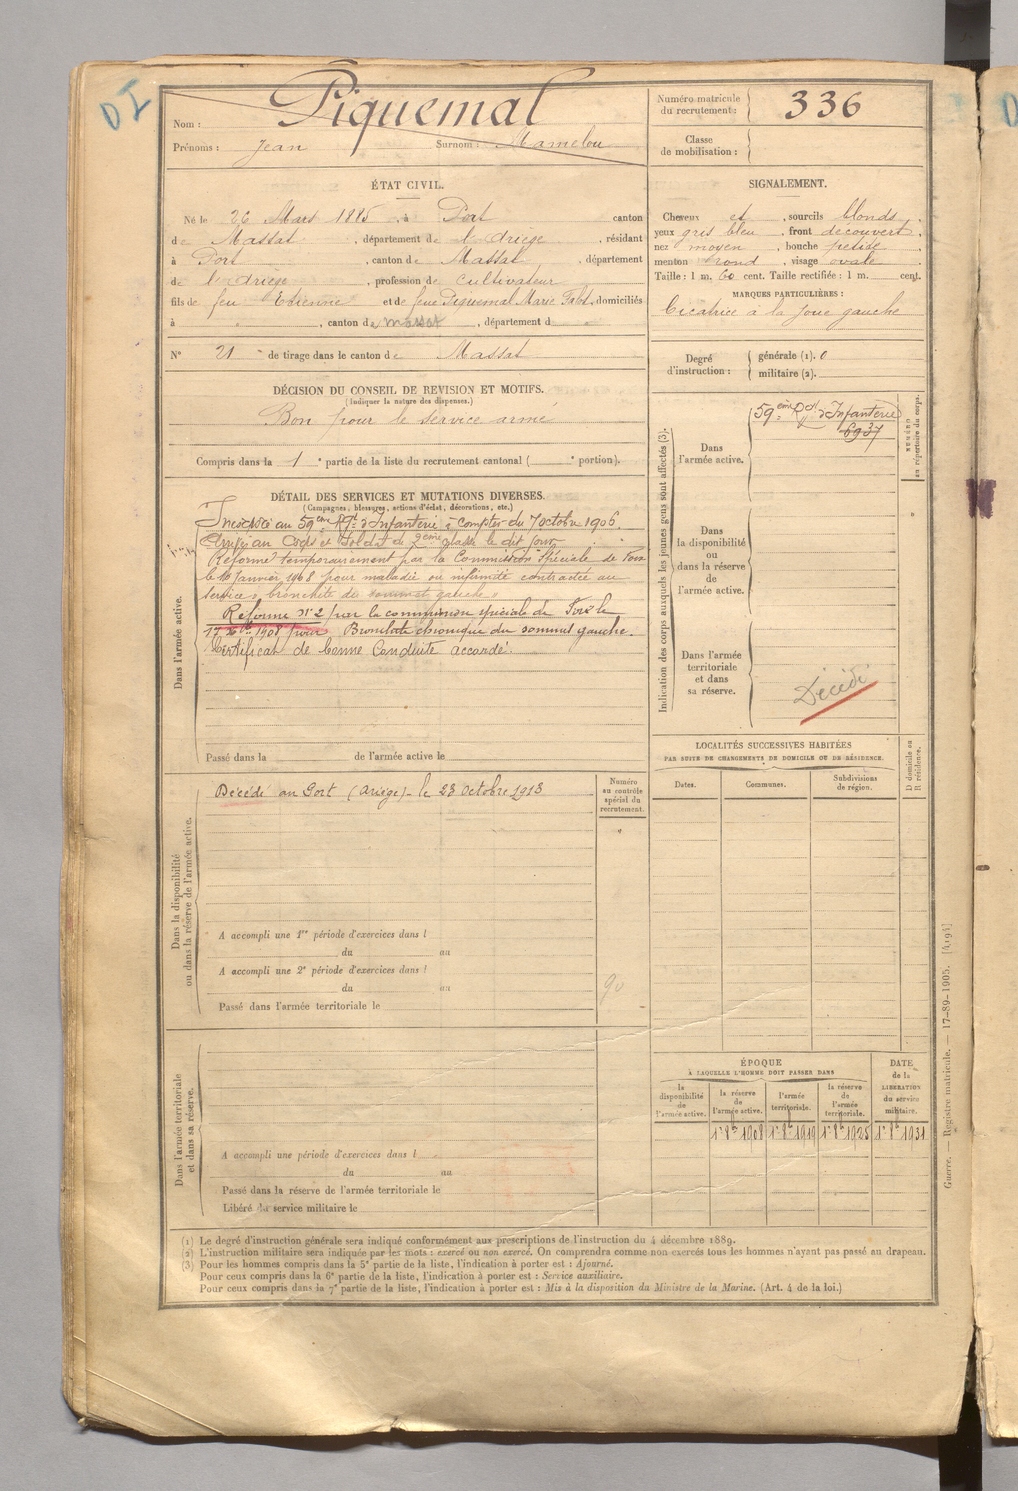 D I
Nom : Piquemal
Prénoms : Jean Surnom : Mamelou
Numéro matricule du recrutement : 336
Classe de mobilisation :
ÉTAT CIVIL.
Né le 26 Mars 1885, à Port canton
de Massat, département de l'Ariège, résidant
à Port, canton de Massat, département
de l'Ariège, profession de cultivateur
fils de feu Etienne et de feue Piquemal Marie domiciliés
à " , canton de Massat, département d
N° 21 de tirage dans le canton de Massat
DÉCISION DU CONSEIL DE REVISION ET MOTIFS.
(Indiquer la nature des dispenses.)
Bon pour le service armé
Compris dans la 1e partie de la liste du recrutement cantonal ( e portion).
SIGNALEMENT.
Cheveux et , sourcils blonds,
yeux gris bleu, front découvert,
nez moyen, bouche petite,
menton rond, visage ovale
Taille : 1 m. 60 cent. Taille rectifiée : 1 m. cent.
MARQUES PARTICULIÈRES :
Cicatrice à la joue gauche
Degré d'instruction : générale (1). 0
militaire (2).
DÉTAIL DES SERVICES ET MUTATIONS DIVERSES.
(Campagnes, blessures, actions d'éclat, décorations, etc.)
Dans l'armée active.
Incorporé au 59ème Rgt d'Infanterie à compter du 7 octobre 1906.
Arrivé au Corps et Soldat de 2ème classe le dit jour
Réformé temporairement par la Commission Spéciale de Foix
le Janvier 1908 pour maladie ou infirmité contractée au
service, bronchite du sommet gauche.
Réformé n° 2 par la commission spéciale de Foix le
17 Xbre 1908 pour Bronchite chronique du sommet gauche.
Certificat de bonne Conduite accordé.
Passé dans la de l'armée active le
Dans la disponibilité ou dans la réserve de l'armée active.
Décédé au Port (Ariège) - le 23 Octobre 1913
Numéro au contrôle spécial du recrutement.
"
A accompli une 1re période d'exercices dans l
du au
A accompli une 2e période d'exercices dans l
du au
Passé dans l'armée territoriale le
90
Dans l'armée territoriale et dans sa réserve.
A accompli une période d'exercices dans l
du au
Passé dans la réserve de l'armée territoriale le
Libéré du service militaire le
Indication des corps auxquels les jeunes gens sont affectés (3).
Dans l'armée active.
59ème Rgt d'Infanterie
6937
NUMÉRO au répertoire du corps.
Dans la disponibilité ou dans la réserve de l'armée active.
"
Dans l'armée territoriale et dans sa réserve.
Décédé
LOCALITÉS SUCCESSIVES HABITÉES
PAR SUITE DE CHANGEMENTS DE DOMICILE OU DE RÉSIDENCE.
Dates. Communes. Subdivisions de région.
D domicile ou R résidence.
ÉPOQUE
À LAQUELLE L'HOMME DOIT PASSER DANS
la disponibilité de l'armée active.
la réserve de l'armée active.
l'armée territoriale.
la réserve de l'armée territoriale.
DATE de la LIBÉRATION du service militaire.
1er 8bre 1908 1er 8bre 1919 1er 8bre 1925 1er 8bre 1931
Guerre. — Registre matricule. — 17-89-1905. [4194]
(1) Le degré d'instruction générale sera indiqué conformément aux prescriptions de l'instruction du 4 décembre 1889.
(2) L'instruction militaire sera indiquée par les mots : exercé ou non exercé. On comprendra comme non exercés tous les hommes n'ayant pas passé au drapeau.
(3) Pour les hommes compris dans la 5e partie de la liste, l'indication à porter est : Ajourné.
Pour ceux compris dans la 6e partie de la liste, l'indication à porter est : Service auxiliaire.
Pour ceux compris dans la 7e partie de la liste, l'indication à porter est : Mis à la disposition du Ministre de la Marine. (Art. 4 de la loi.)